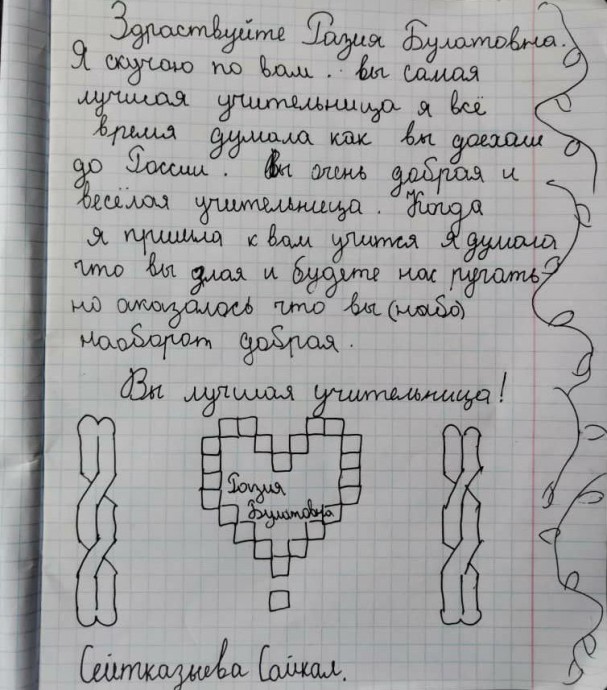 Здраствуйте Газия Булатовна.
Я скучаю по вам. вы самая
лучшая учительница я всё
время думала как вы доехали
до России. Вы очень добрая и
весёлая учительница. Когда
я пришла к вам учится я думала
что вы злая и будете нас ругать
но оказалось что вы (набо)
наоборот добрая.
Вы лучшая учительница!
Газия
Булатовна
Сейтказыева Сайкал.